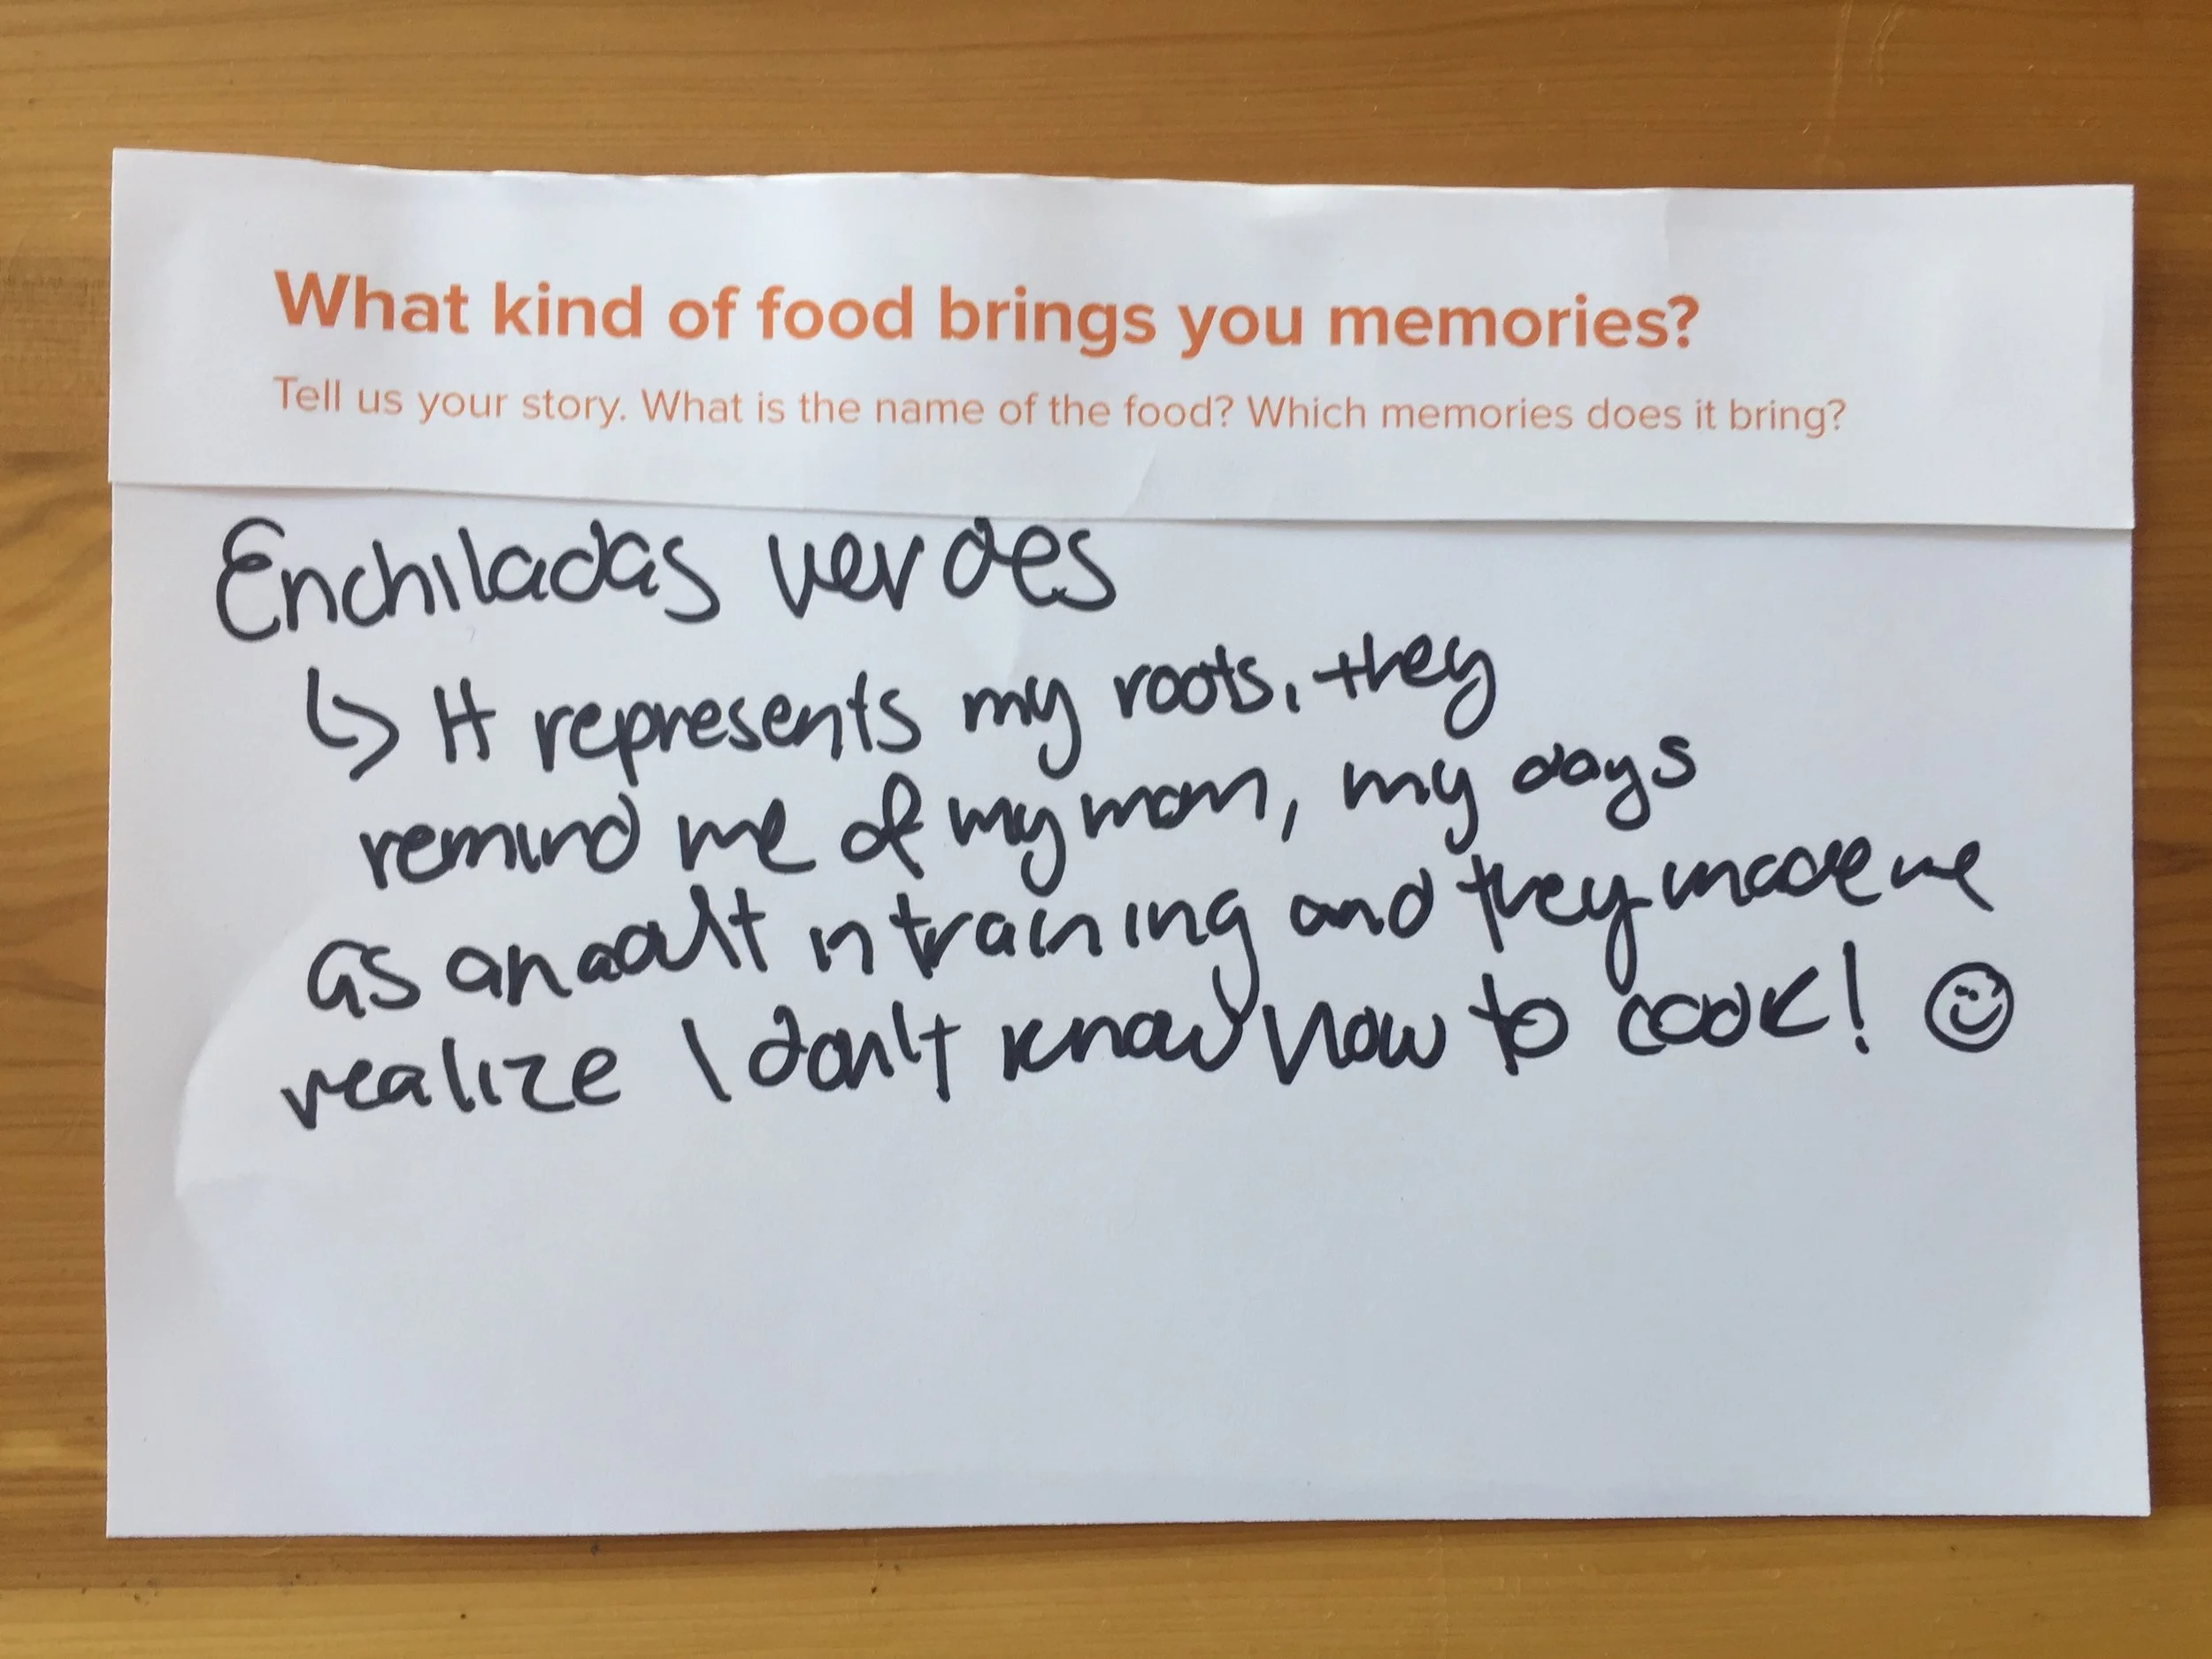 What kind of food brings you memories?
Tell us your story. What is the name of the food? Which memories does it bring?
Enchiladas verdes
↳ It represents my roots, they
remind me of my mom, my days
as an adult in training and they made me
realize I don't know how to cook! ☺